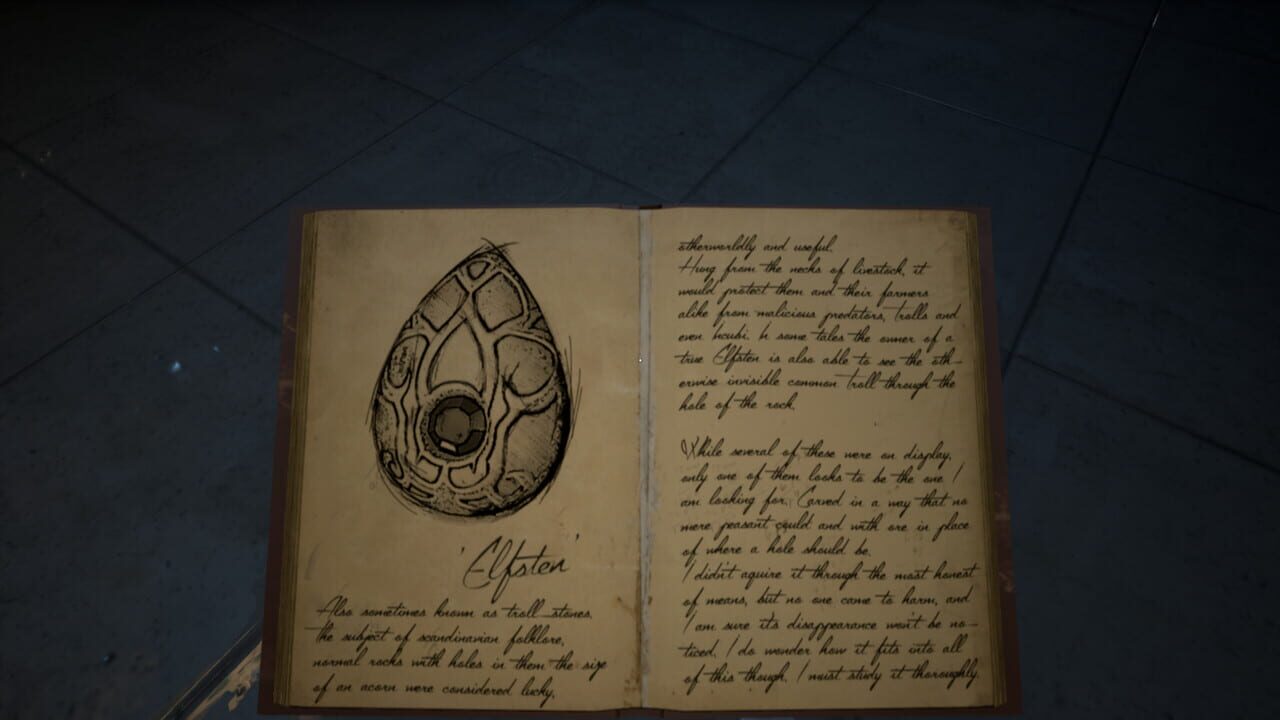 'Elfsten'
Also sometimes known as troll stones.
the subject of scandinavian folklore,
normal rocks with holes in them the size
of an acorn were considered lucky,
otherworldly and useful.
Hung from the necks of livestock, it
would protect them and their farmers
alike from malicious predators, trolls and
even Incubi. In some tales the owner of a
true Elfsten is also able to see the oth-
erwise invisible common troll through the
hole of the rock.
While several of these were on display,
only one of them looks to be the one I
am looking for. Carved in a way that no
mere peasant could and with ore in place
of where a hole should be.
I didn't aquire it through the most honest
of means, but no one came to harm, and
I am sure its disappearance won't be no-
ticed. I do wonder how it fits into all
of this though. I must study it thoroughly.